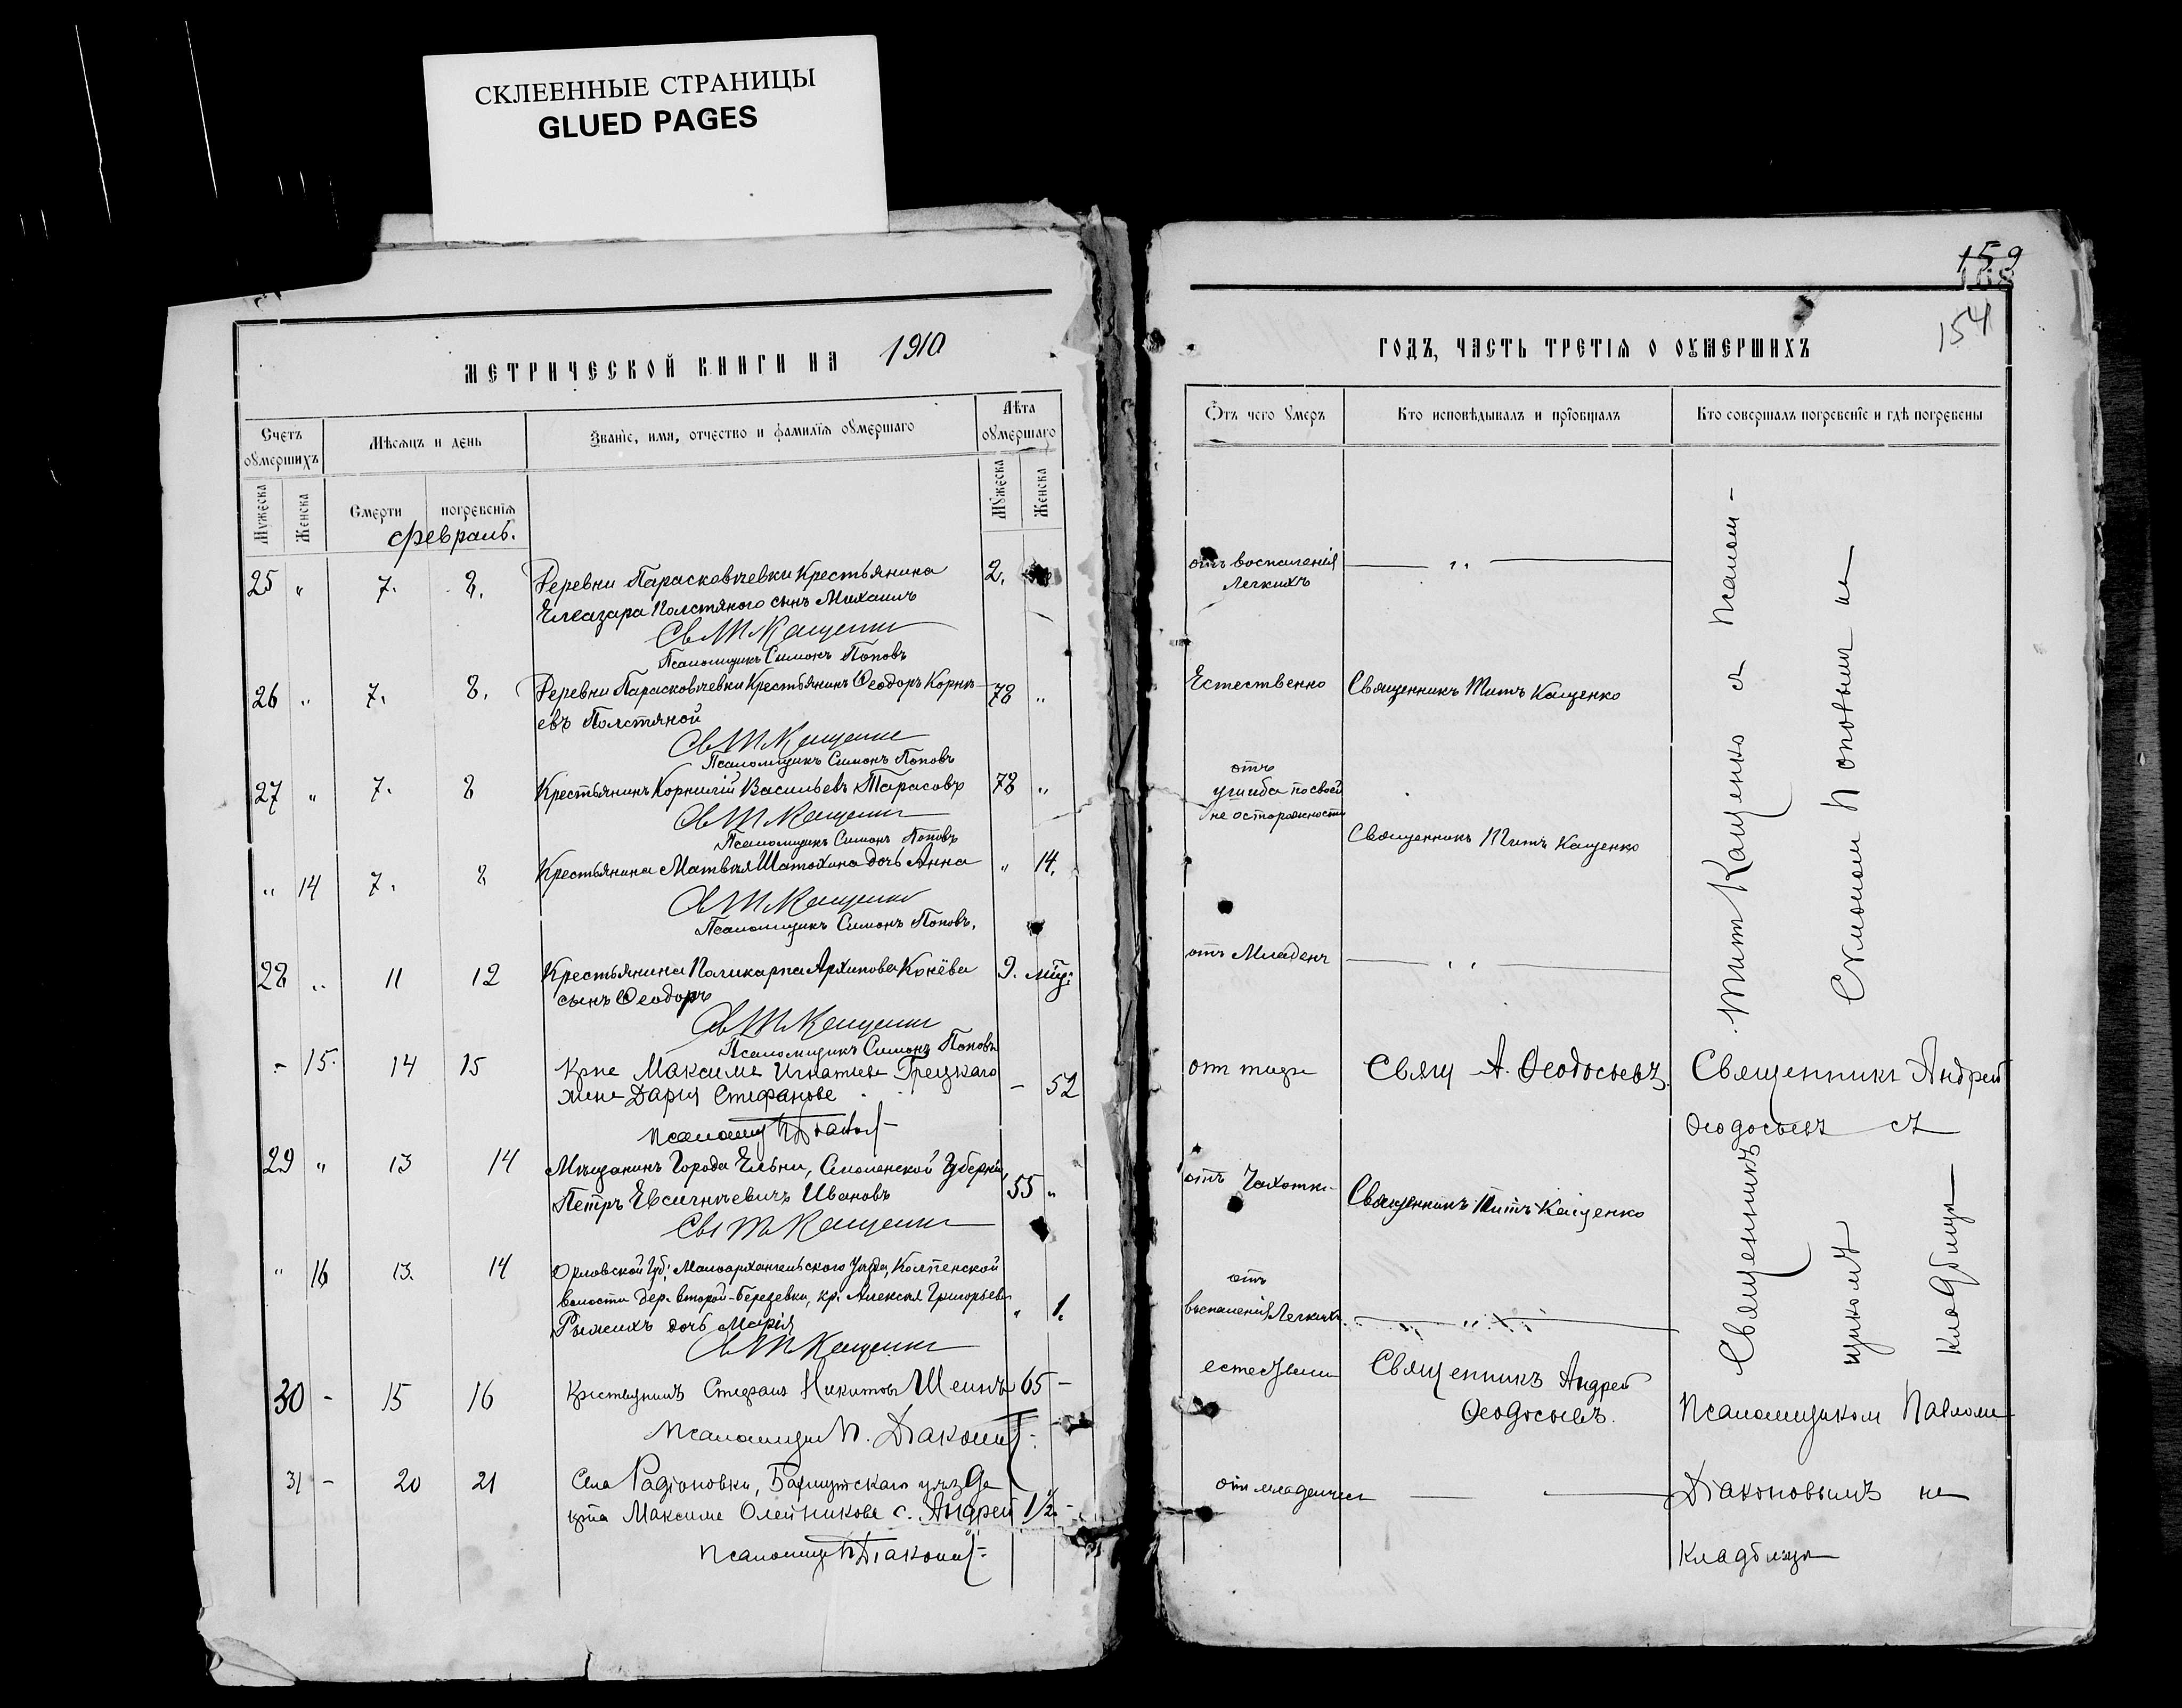 СКЛЕЕННЫЕ СТРАНИЦЫ
GLUED PAGES
МЕТРИЧЕСКОЙ КНИГИ НА 1910
Счетъ оумершихъ
Мѣсяцъ и день
Званіе, имя, отчество и фамилія оумершаго
Лѣта оумершаго
Мужеска
Женска
Смерти
погребенія
Мужеска
Женска
Февраль.
25 " 7. 8. Деревни Парасковіевки Крестьянина 2.
Елеазара Полстяного сынъ Михаилъ
Св Т Кащенко
Псаломщикъ Симонъ Поповъ
26 " 7. 8. Деревни Парасковіевки Крестьянинъ Ѳеодоръ Корні- 78 "
евъ Полстяной
Св Т Кащенко
Псаломщикъ Симонъ Поповъ
27 " 7. 8 Крестьянинъ Корнилій Васильевъ Тарасовъ 78 "
Св Т Кащенко
Псаломщикъ Симонъ Поповъ
" 14 7. 8 Крестьянина Матвѣя Шатохина дочь Анна " 14.
Св Т Кащенко
Псаломщикъ Симонъ Поповъ.
28 " 11 12 Крестьянина Поликарпа Архипова Конёва 9. мѣц:
сынъ Ѳеодоръ
Св Т Кащенко
Псаломщикъ Симонъ Поповъ
- 15. 14 15 Крне Максима Игнатіева Грецкаго
жена Дарія Стефанова - 52
29 " 13 14 Мѣщанинъ Города Ельни, Смоленской Губерніи,
Петръ Евсигніевичъ Ивановъ 55 "
Свя Т Кащенко
" 16 13. 14 Орловской Губ; Малоархангельского Уѣзда, Колпенской
Волости дер. второй-Березевки, кр. Алексѣя Григорьева " 1.
Рыжихъ дочь Марія
Св Т Кащенко
30 - 15 16 Крестьянинъ Стефанъ Никитовъ Шеинъ 65 -
31 - 20 21 Села Радіоновки, Бахмутскаго уѣзда
крна Максима Олейникова с. Андрей 1½ -
159
154
ГОДЪ, ЧАСТЬ ТРЕТІЯ О ОУМЕРШИХЪ
Отъ чего умеръ
Кто исповѣдывалъ и пріобщалъ
Кто совершалъ погребеніе и гдѣ погребены
отъ воспаленія
Легкихъ
Естественно Священникъ Титъ Кащенко
отъ
ушиба по своей
не осторожности
Священникъ Титъ Кащенко
отъ Младенч
Свящ А. Ѳеодосьевъ.
отъ Чахотки Священникъ Титъ Кащенко
отъ
воспаленія Легкихъ
Священникъ Андрей
Ѳеодосьевъ.
Священникъ
Титъ Кащенко съ Псалом-
щикомъ
Симономъ Поповымъ на
кладбищѣ
Священникъ Андрей
Ѳеодосьевъ съ
Псаломщикомъ Павломъ
Діаконовымъ на
Кладбищѣ